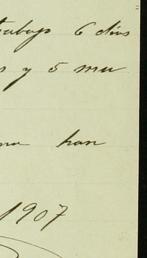 trabajo 6 dias
s y 5 mu
na han
1907